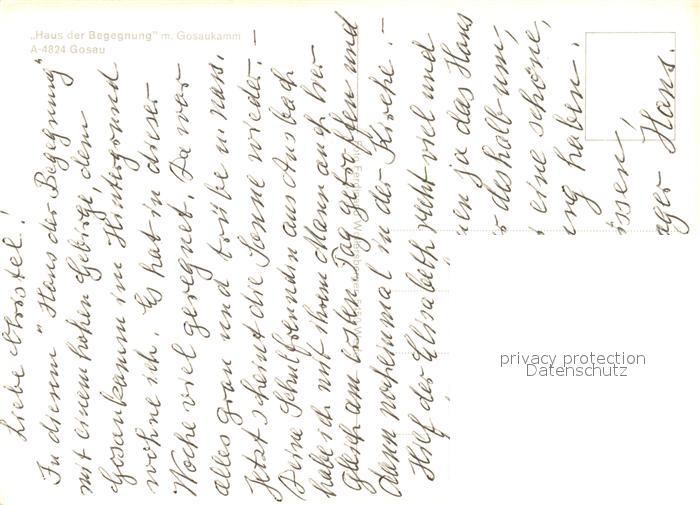 „Haus der Begegnung" m. Gosaukamm
A-4824 Gosau
Liebe Christel!
In diesem "Haus der Begegnung"
mit einem hohen Gebirge, dem
Gosaukamm im Hintergrund
wohne ich. Es hat in dieser
Woche viel geregnet. Da war
alles grau und trübe u. nass.
Jetzt scheint die Sonne wieder. –
Deine Schulfreundin aus Ansbach
habe ich mit ihrem Mann auch hier
gleich am ersten Tag getroffen und
dann noch einmal in der Kirche. –
Hilf der Elisabeth recht viel und
en ja das Haus
deshalb um,
eine schöne,
ng haben.
üssen,
ager Hans.
privacy protection
Datenschutz